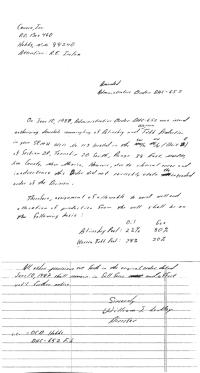 Conoco, Inc.
P.O. Box 460
Hobbs, N.M. 88240
Attention:
Amended
Administrative Order DHC-652
On June 10, 1988, Administrative Order DHC-652 was issued
authorizing downhole commingling of Blinebry and Tubb Production
in your SEMU Well No. 113 located in the
of Section 20, Township 20 South, Range 38 East,
Lea County, New Mexico. However, due to clerical error and
inadvertence this Order did not correctly state the intended
order of the Division.
Therefore, assignment of allowable to said well and
allocation of production from the well shall be on
the following basis:
Oil Gas
Blinebry Pool: 22% 80%
Tubb Pool: 78% 20%
All other provisions set forth in the original order dated
June 10, 1988 shall remain in full force and effect
until further notice.
Sincerely
William J. LeMay
Director
cc: OCD Hobbs
DHC-652 File